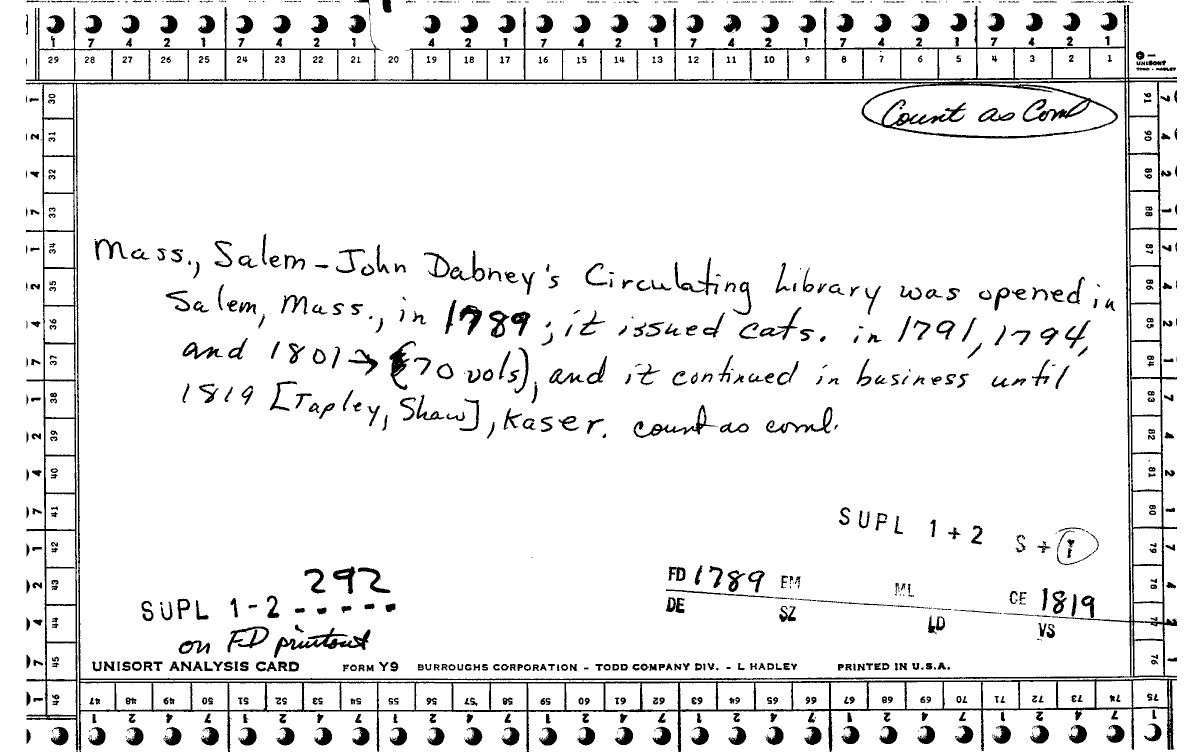 7 4 2 1 7 4 2 1 4 2 1 7 4 2 1 7 4 2 1 7 4 2 1 7 4 2 1
29 28 27 26 25 24 23 22 21 20 19 18 17 16 15 14 13 12 11 10 9 8 7 6 5 4 3 2 1
UNISORT
Count as Coml
Mass., Salem - John Dabney's Circulating Library was opened in
Salem, Mass., in 1789; it issued cats. in 1791, 1794,
and 1801 → (70 vols), and it continued in business until
1819 [Tapley, Shaw], Kaser. count as coml.
SUPL 1+2 S + 1
292
SUPL 1-2 -----
on FD printout
FD 1789 EM ML CE 1819
DE SZ LD VS
UNISORT ANALYSIS CARD FORM Y9 BURROUGHS CORPORATION - TODD COMPANY DIV. - L HADLEY PRINTED IN U.S.A.
30 31 32 33 34 35 36 37 38 39 40 41 42 43 44 45 46
47 48 49 50 51 52 53 54 55 56 57 58 59 60 61 62 63 64 65 66 67 68 69 70 71 72 73 74 75
76 77 78 79 80 81 82 83 84 85 86 87 88 89 90 91
1 2 4 7 1 2 4 7 1 2 4 7 1 2 4 7 1 2 4 7 1 2 4 7 1 2 4 7 1